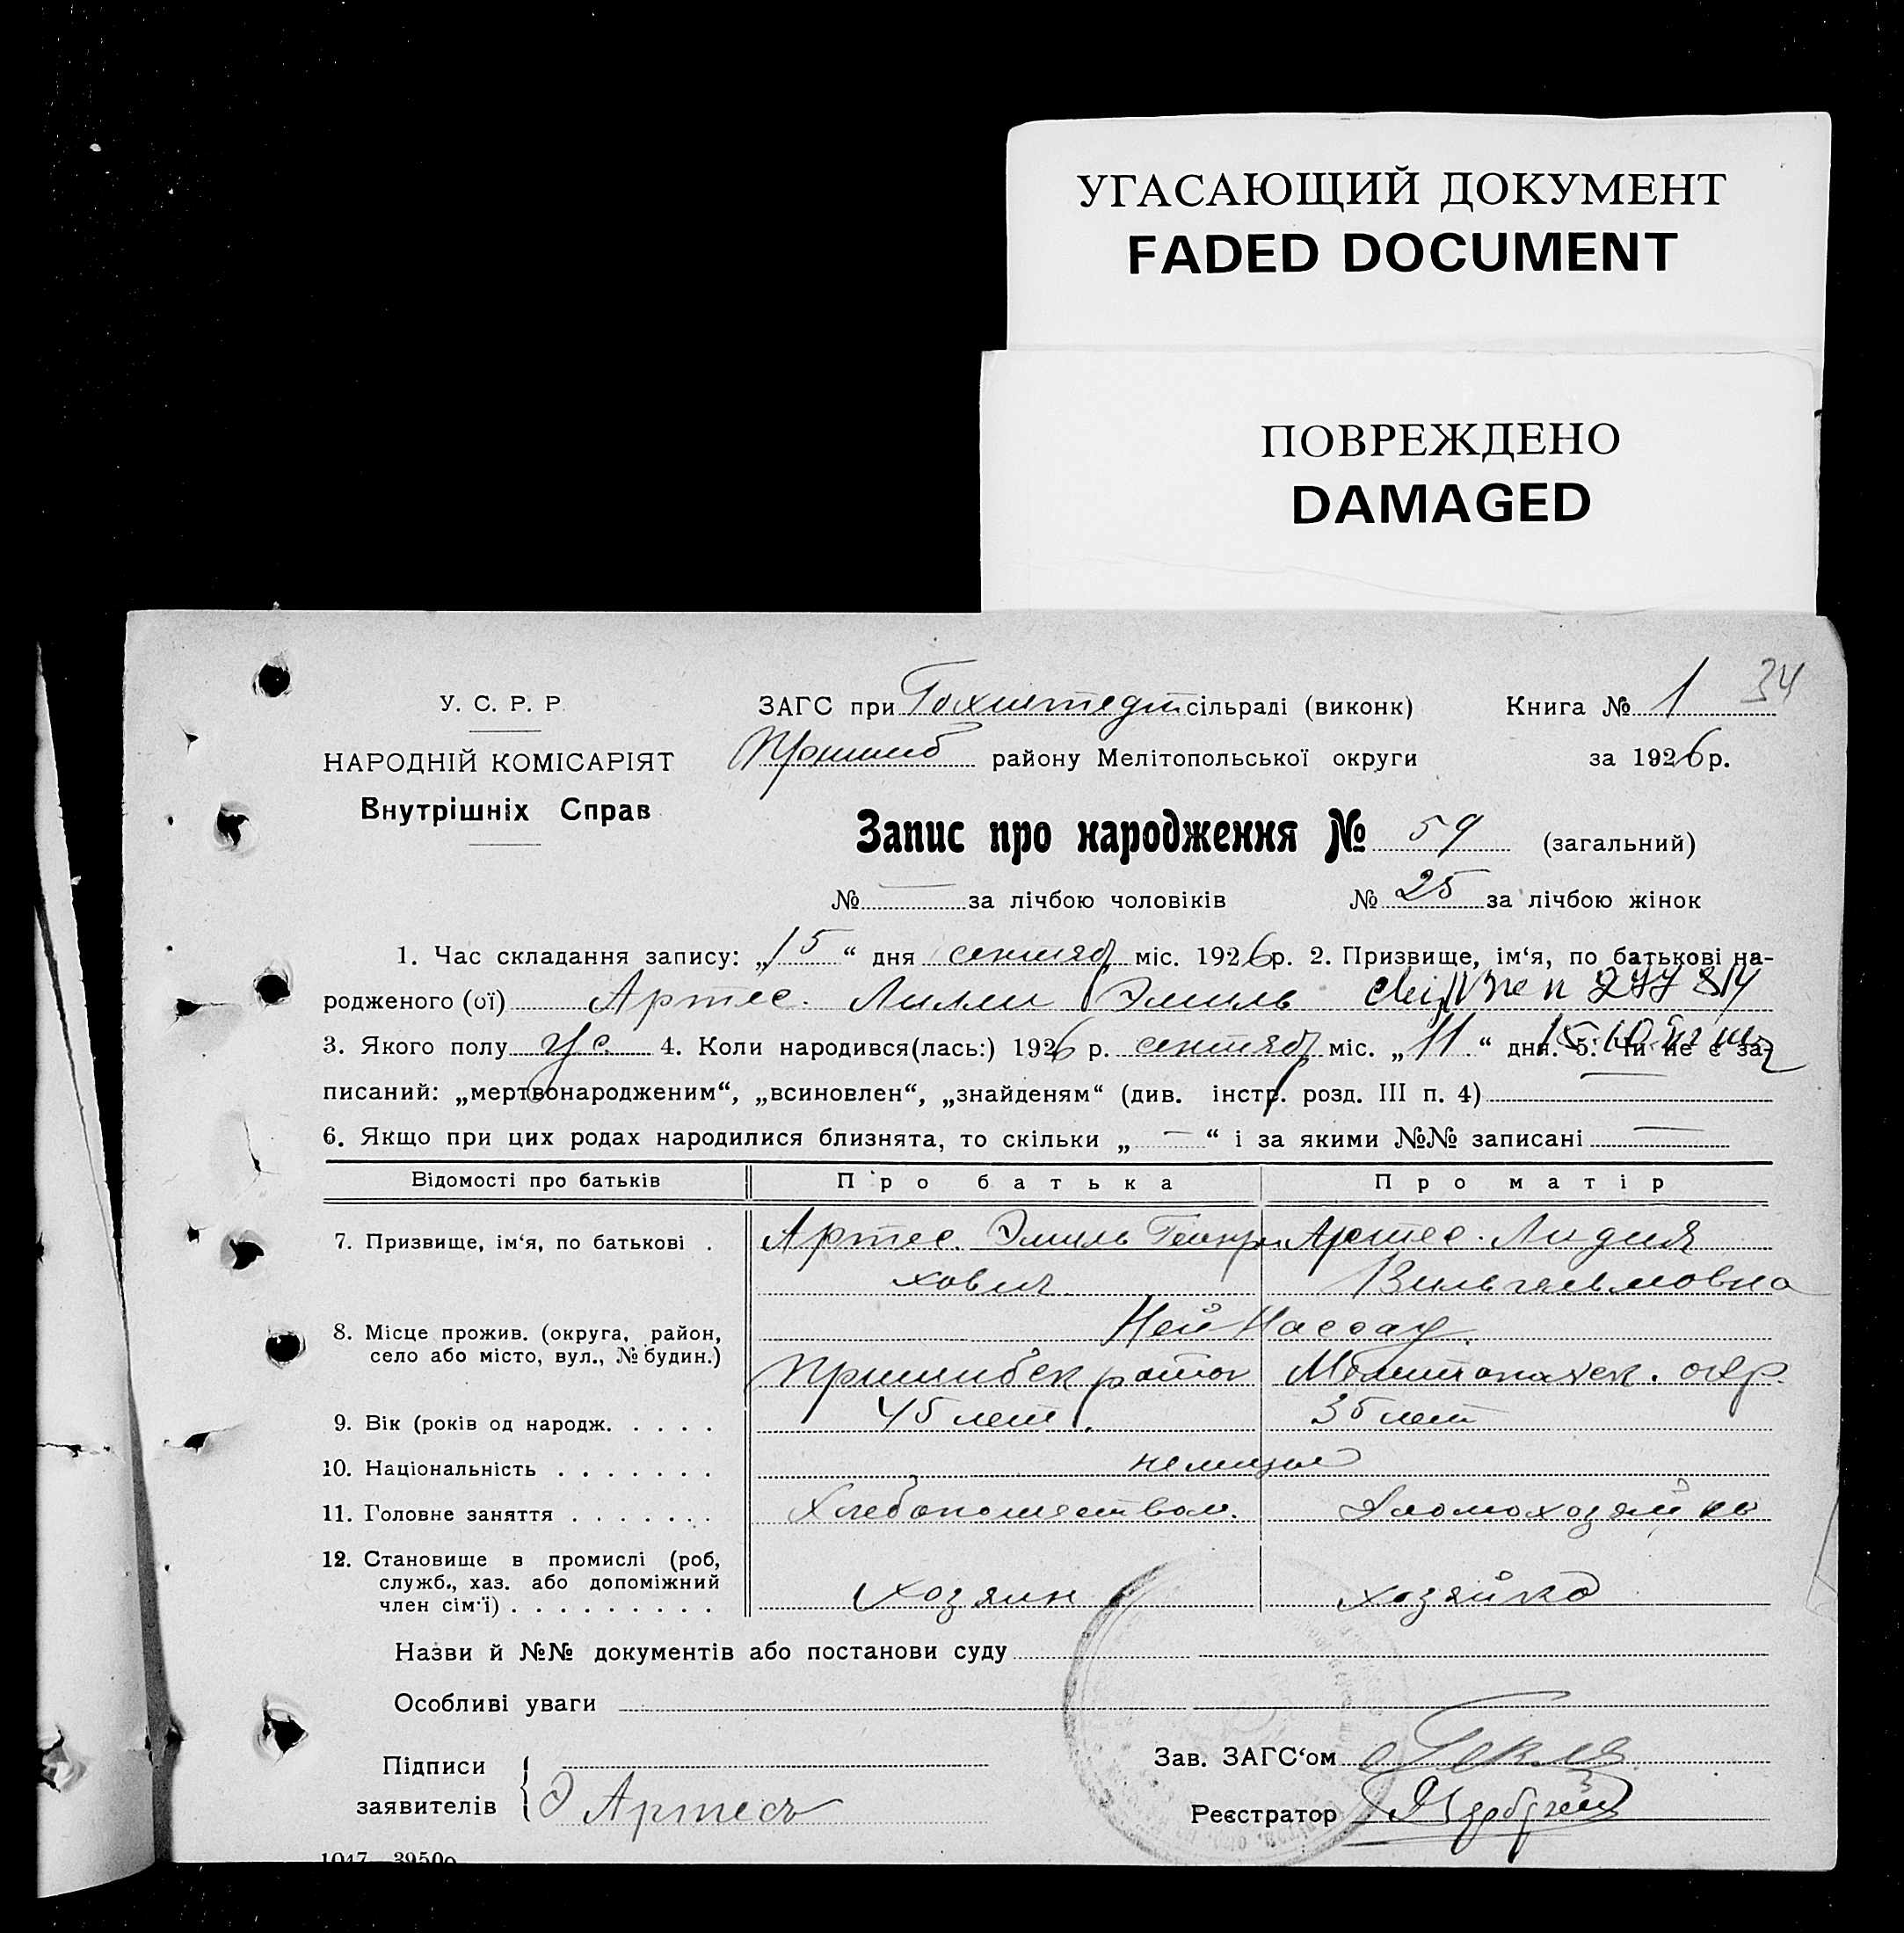 УГАСАЮЩИЙ ДОКУМЕНТ
FADED DOCUMENT
ПОВРЕЖДЕНО
DAMAGED
34
У. С. Р. Р
ЗАГС при Гохштедт сільраді (виконк)
Книга № 1
НАРОДНІЙ КОМІСАРІЯТ
Пришиб району Мелітопольської округи
за 1926 р.
Внутрішніх Справ
Запис про народження № 59 (загальний)
№ — за лічбою чоловіків № 25 за лічбою жінок
1. Час складання запису: „15“ дня сентяб міс. 1926 р. 2. Призвище, ім‘я, по батькові на-
родженого (ої) Артес. Лилли Эмиль
3. Якого полу жс. 4. Коли народився(лась:) 1926 р. сентяб міс. „11“ дня. 5. Чи не є за-
писаний: „мертвонародженим“, „всиновлен“, „знайденям“ (див. інстр. розд. III п. 4) —
6. Якщо при цих родах народилися близнята, то скільки „—“ і за якими №№ записані —
Відомості про батьків Про батька Про матір
7. Призвище, ім‘я, по батькові . Артес. Эмиль Генри Артес. Лидия
хович Вильгельмовна
8. Місце прожив. (округа, район, Ней Насоау
село або місто, вул., № будин.) Пришибск район Мелитопольск. окр.
9. Вік (років од народж. . . . . 45 лет. 35 лет
10. Національність . . . . . . . немцы
11. Головне заняття . . . . . . . Хлебопошеством. Домохозяйка
12. Становище в промислі (роб,
служб., хаз. або допоміжний
член сім‘ї) . . . . . . . . . . хозяин хозяйка
Назви й №№ документів або постанови суду
Особливі уваги
Підписи
заявителів Э Артесъ
Зав. ЗАГС‘ом
Реєстратор
1047—3950о